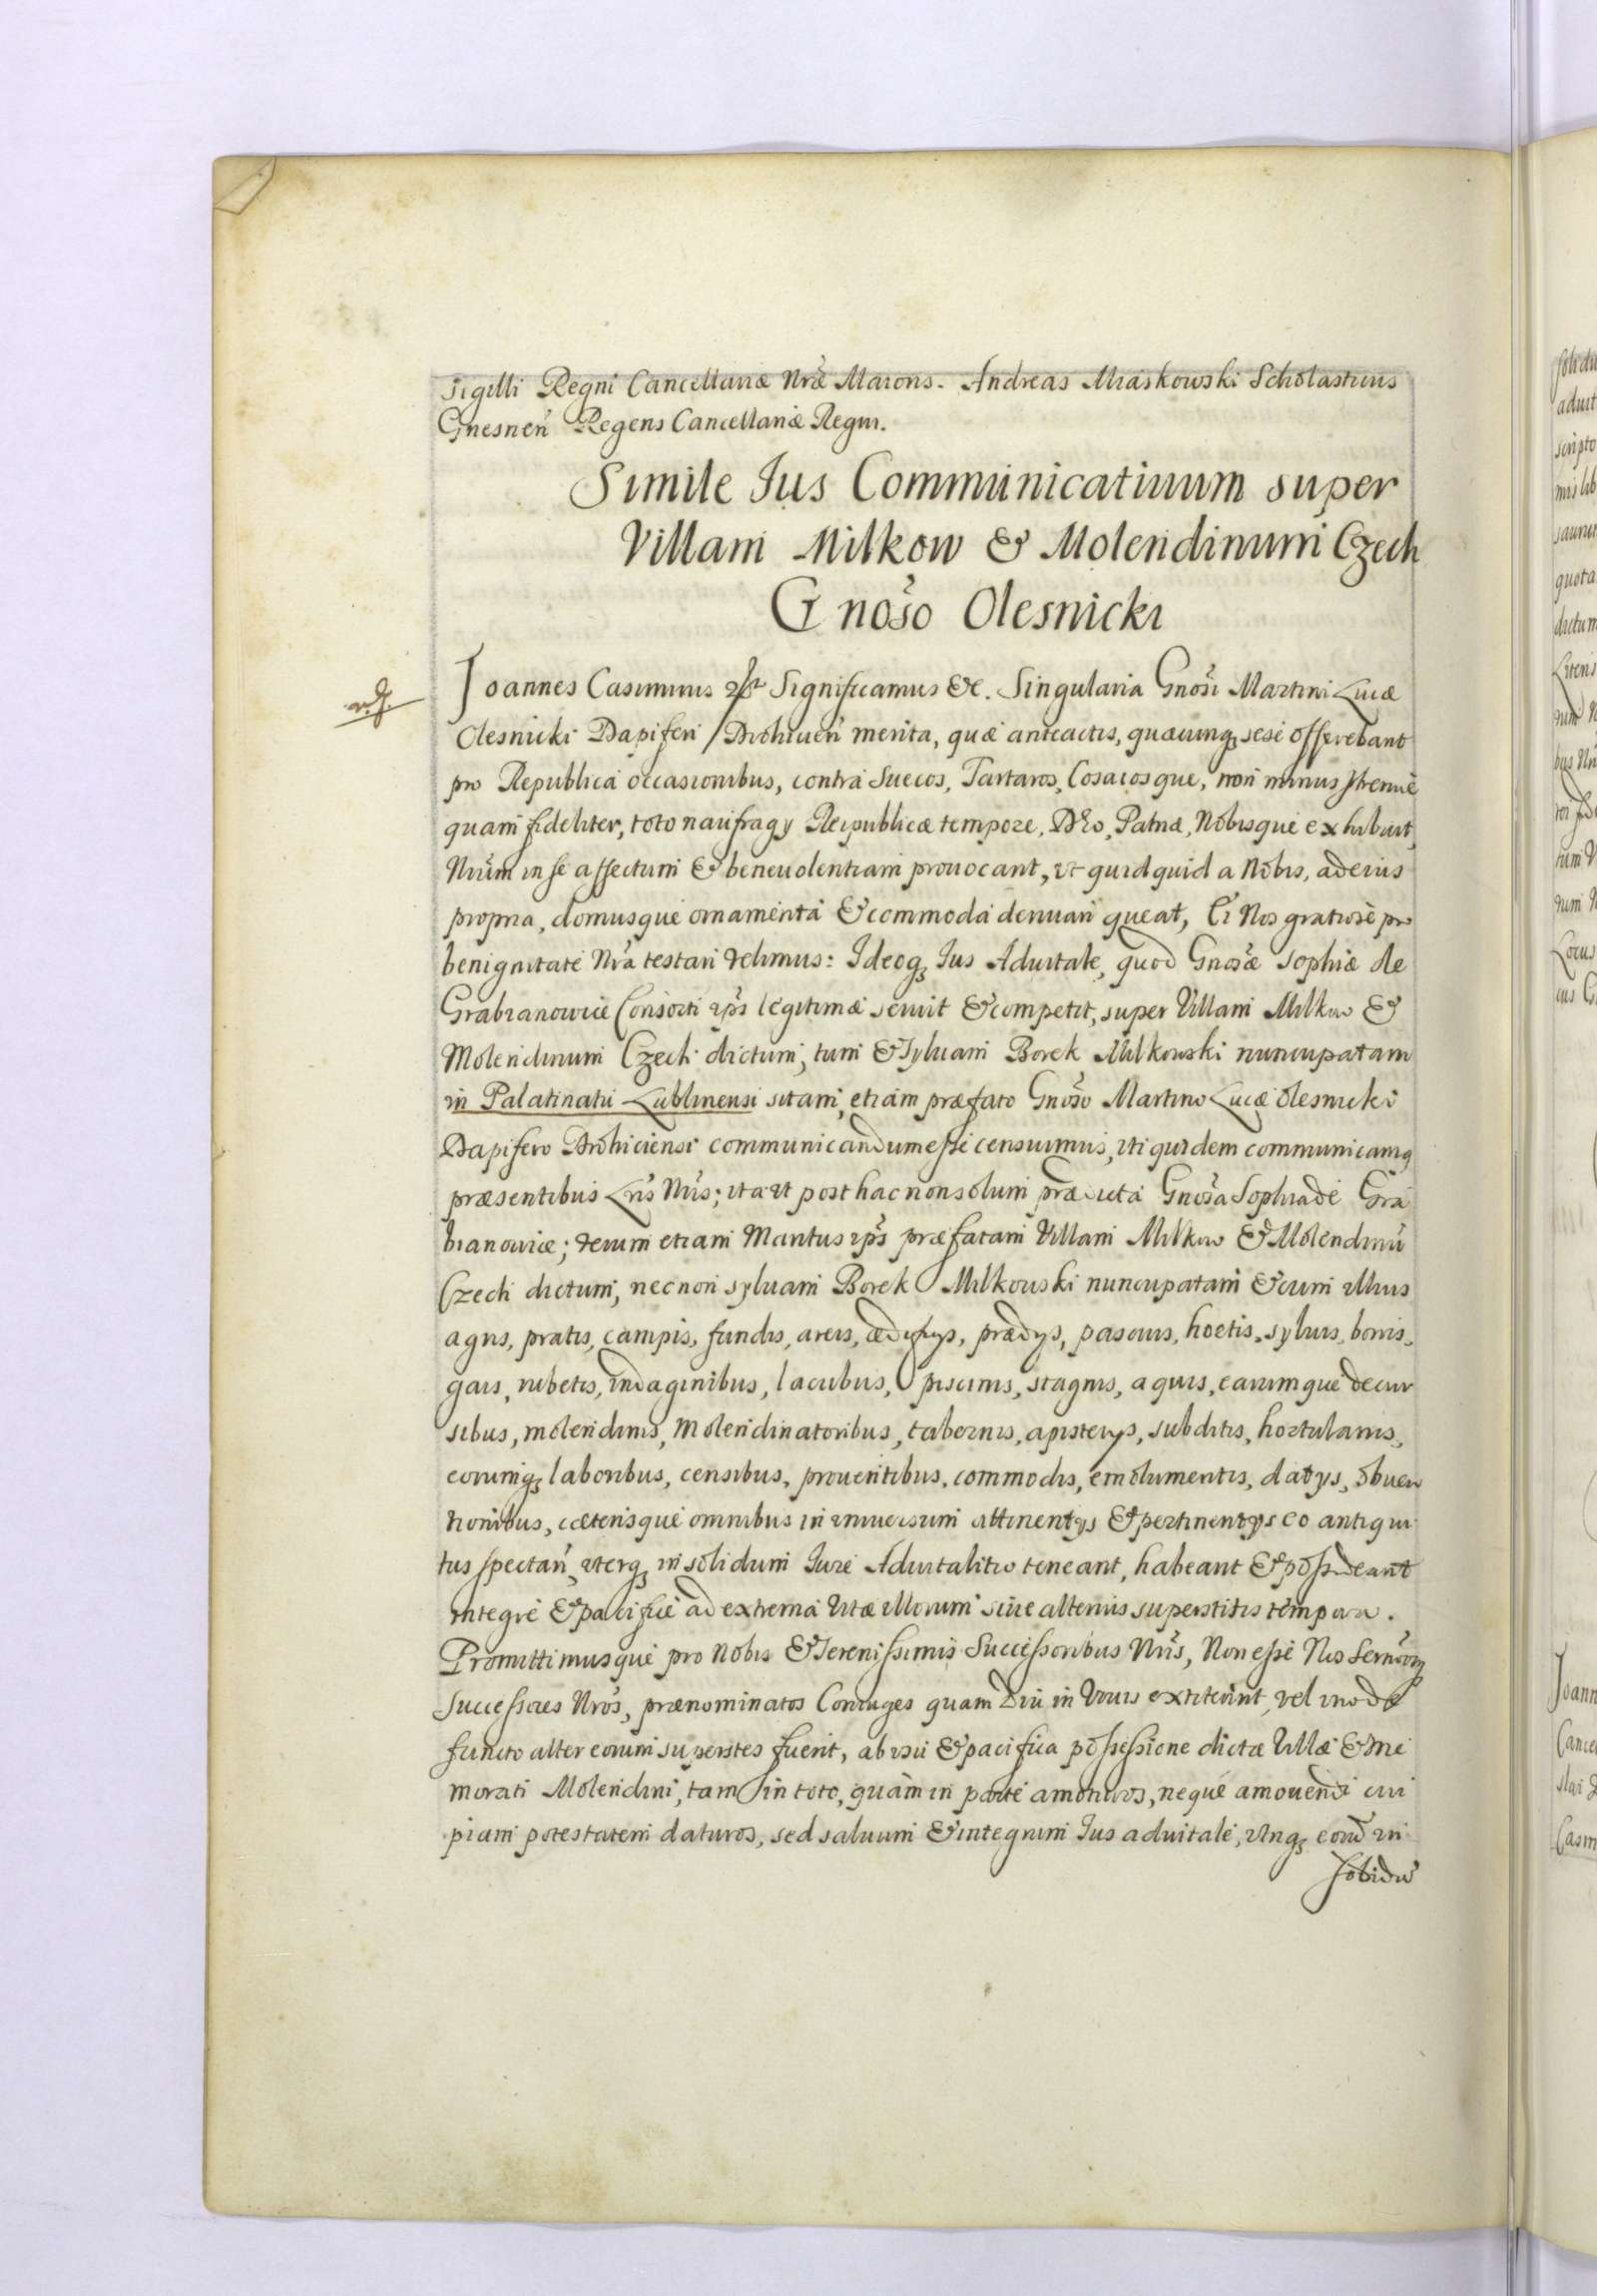 Sigilli Regni Cancellariæ Nræ Maioris. Andreas Miaskowski Scholasticus
Gnesnen̄ Regens Cancellariæ Regni.
Simile Ius Communicatiuum super
Villam Milkow & Molendinum Czech
Gnoso Olesnicki
Ioannes Casimirus Significamus &c. Singularia Gnosi Martini Lucæ
Olesnicki Dapiferi Drohicen̄ merita, quæ anteactis, quæcunq, sese offerebant
pro Republica occasionibus, contra Suecos, Tartaros, Cosacosque, non minus strenuè
quam fideliter, toto naufragy Reipublicæ tempore, Deo, Patriæ, Nobisque exhibuit,
Nrum in se affectum & beneuolentiam prouocant, vt quidquid a Nobis, ad eius
propria, domusque ornamenta & commoda deriuari queat, Ei Nos gratiosè pro
benignitate Nra testari velimus: Ideoq, Ius Aduitale, quod Gnosæ Sophiæ de
Grabianowice Consorti ipsi legitimæ seruit & competit, super Villam Milkow &
Molendinum Czech dictum, tum & Syluam Borek Milkowski nuncupatam
in Palatinatu Lublinensi sitam, etiam præfato Gnoso Martino Lucæ Olesnicki
Dapifero Drohiciensi communicandum esse censuimus, vti quidem communicamq
præsentibus Lris Nris; ita vt posthac non solum prædicta Gnosa Sophia de Gra
bianowice; verum etiam Maritus ipsi præfatam Villam Milkow & Molendinū
Czech dictum, nec non syluam Borek Milkowski nuncupatam & cum illius
agris, pratis, campis, fundis, areis, ædificys, prædys, pascuis, hortis, syluis, borris,
gais, rubetis, indaginibus, lacubus, piscinis, stagnis, aquis, earumque decur
sibus, molendinis, Molendinatoribus, tabernis, apisterys, subditis, hortulanis,
eorumq, laboribus, censibus, prouentibus, commodis, emolumentis, datys, obuen
tionibus, cæterisque omnibus in vniuersum attinentys & pertinentys eo antiqui
tus spectan̄, vterq, in solidum Iure Aduitalitio teneant, habeant & possideant
integrè & pacificè ad extrema Vitæ illorum siue alterius superstitis tempora.
Promittimusque pro Nobis & Serenissimis Successoribus Nris, Non esse Nos Serenosq
Successores Nros, prænominatos Coniuges quam diu in Viuis extiterint, vel vno de
functo alter eorum superstes fuerit, ab vsu & pacifica possessione dictæ Villæ & me
morati Molendini, tam in toto, quàm in parte amoturos, neque amouendi cui
piam potestatem daturos, sed saluum & integrum Ius aduitale, vtriq, eorū in
solidū